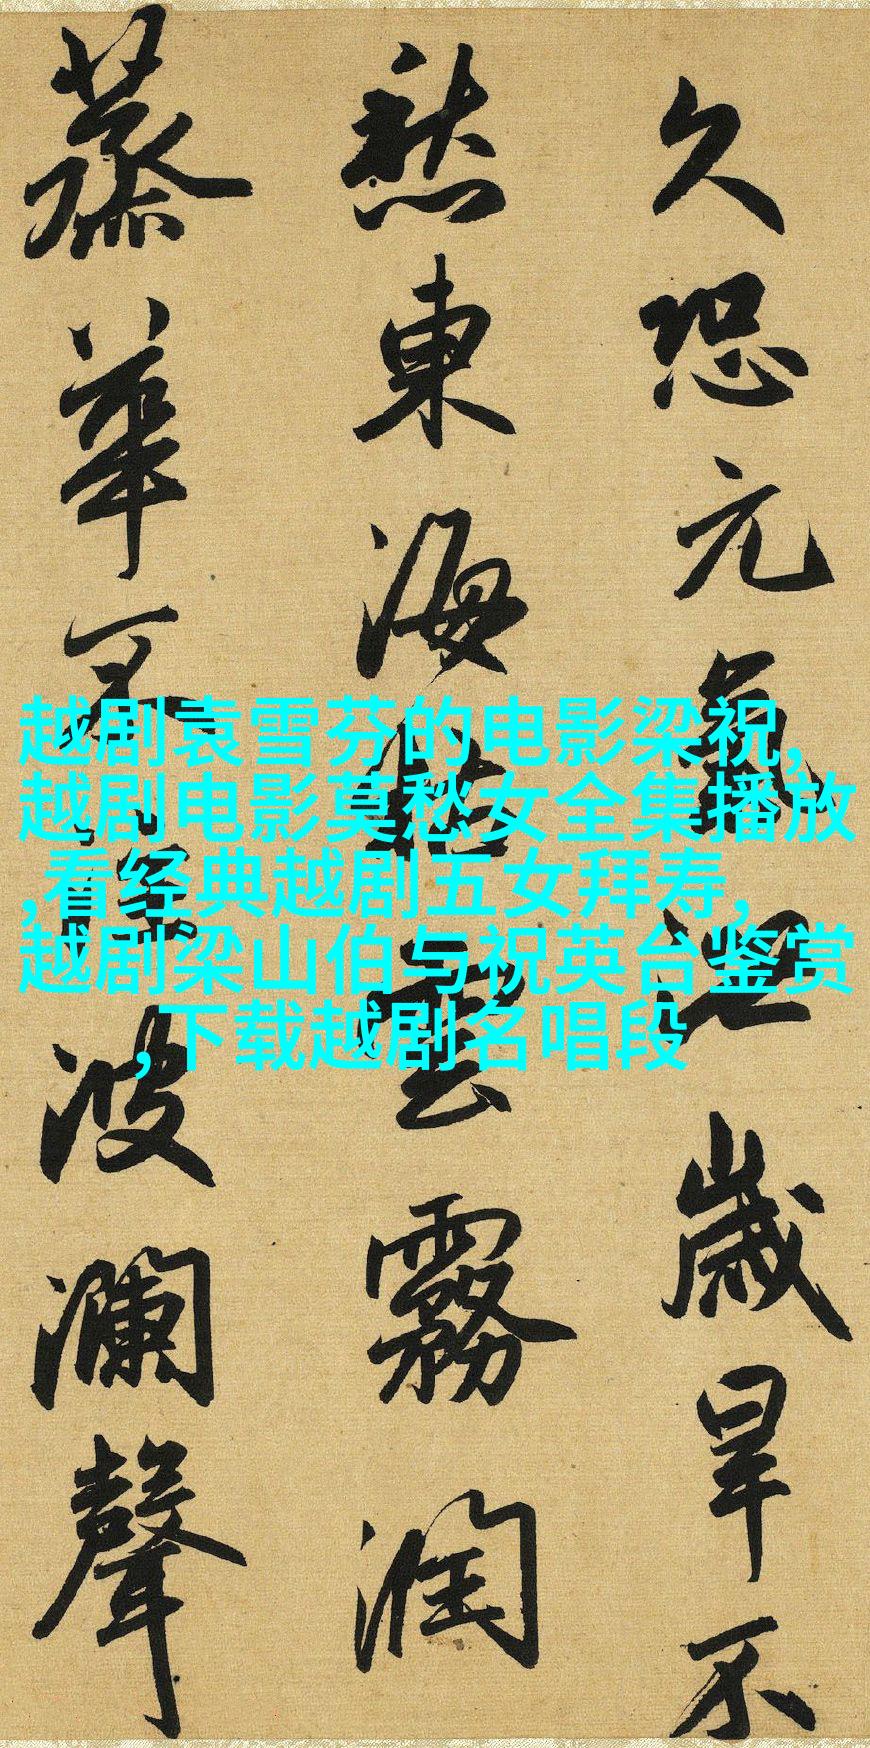 久恐元氣泄歲旱不
愁東海枯雲霧潤
蒸華不注波瀾聲
越剧袁雪芬的电影梁祝,
越剧电影莫愁女全集播放
,看经典越剧五女拜寿,
越剧梁山伯与祝英台鉴赏
,下载越剧名唱段